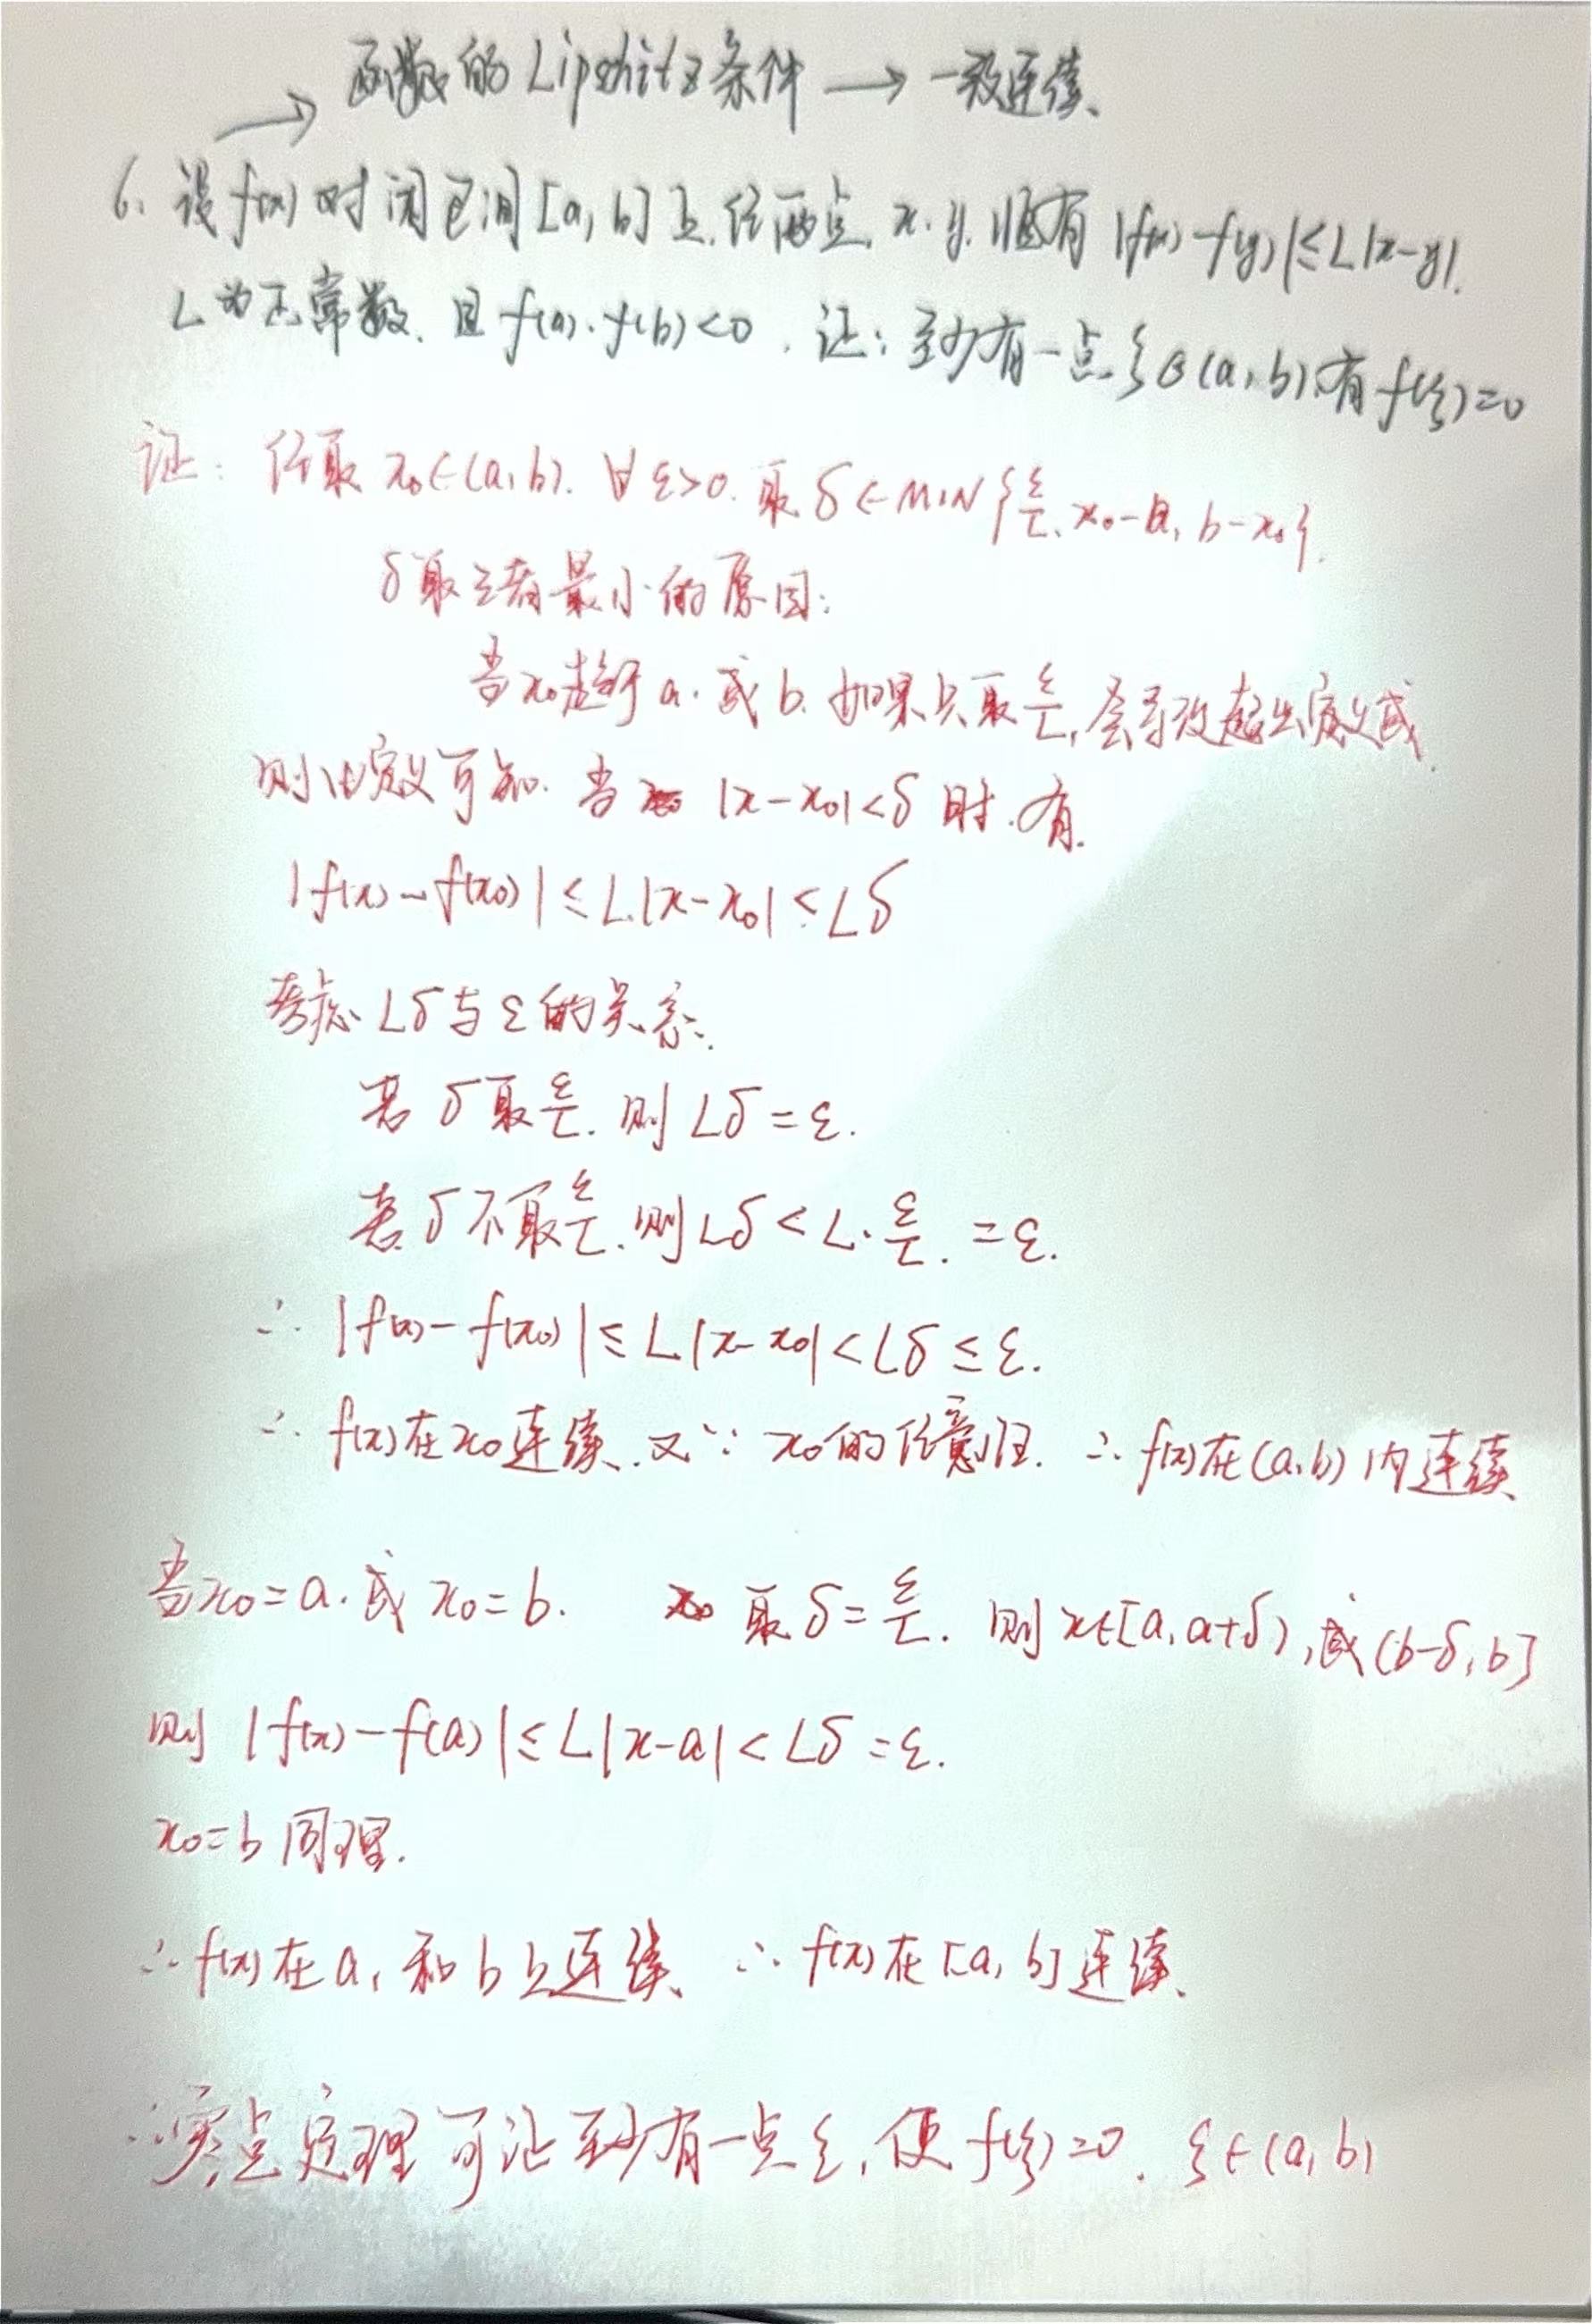 → 函数的Lipshitz条件 → 一致连续.
6. 设f(x)对闭区间[a, b]上任两点 x. y. 恒有 |f(x)-f(y)|≤L|x-y|.
L为正常数. 且f(a)·f(b)<0. 证: 至少有一点ξ∈(a, b)有f(ξ)=0
证: 任取 x₀∈(a, b). ∀ε>0. 取 δ∈MIN{ε/L, x₀-a, b-x₀}.
δ取三者最小的原因:
当x₀趋于a. 或b. 如果只取ε/L, 会导致超出定义域.
则由定义可知. 当 |x-x₀|<δ 时. 有.
|f(x)-f(x₀)|≤L.|x-x₀|≤Lδ
考虑 Lδ与ε的关系:.
若 δ取ε/L. 则 Lδ=ε.
若δ不取ε/L. 则Lδ<L·ε/L. =ε.
∴ |f(x)-f(x₀)|≤L|x-x₀|<Lδ≤ε.
∴ f(x)在x₀连续. 又∵ x₀的任意性. ∴ f(x)在(a, b)内连续
当x₀=a. 或 x₀=b. 取δ=ε/L. 则x∈[a, a+δ), 或(b-δ, b]
则 |f(x)-f(a)|≤L|x-a|<Lδ=ε.
x₀=b 同理.
∴ f(x)在a, 和b上连续. ∴ f(x)在[a, b]连续.
∴零点定理可证至少有一点ξ, 使f(ξ)=0. ξ∈(a, b)